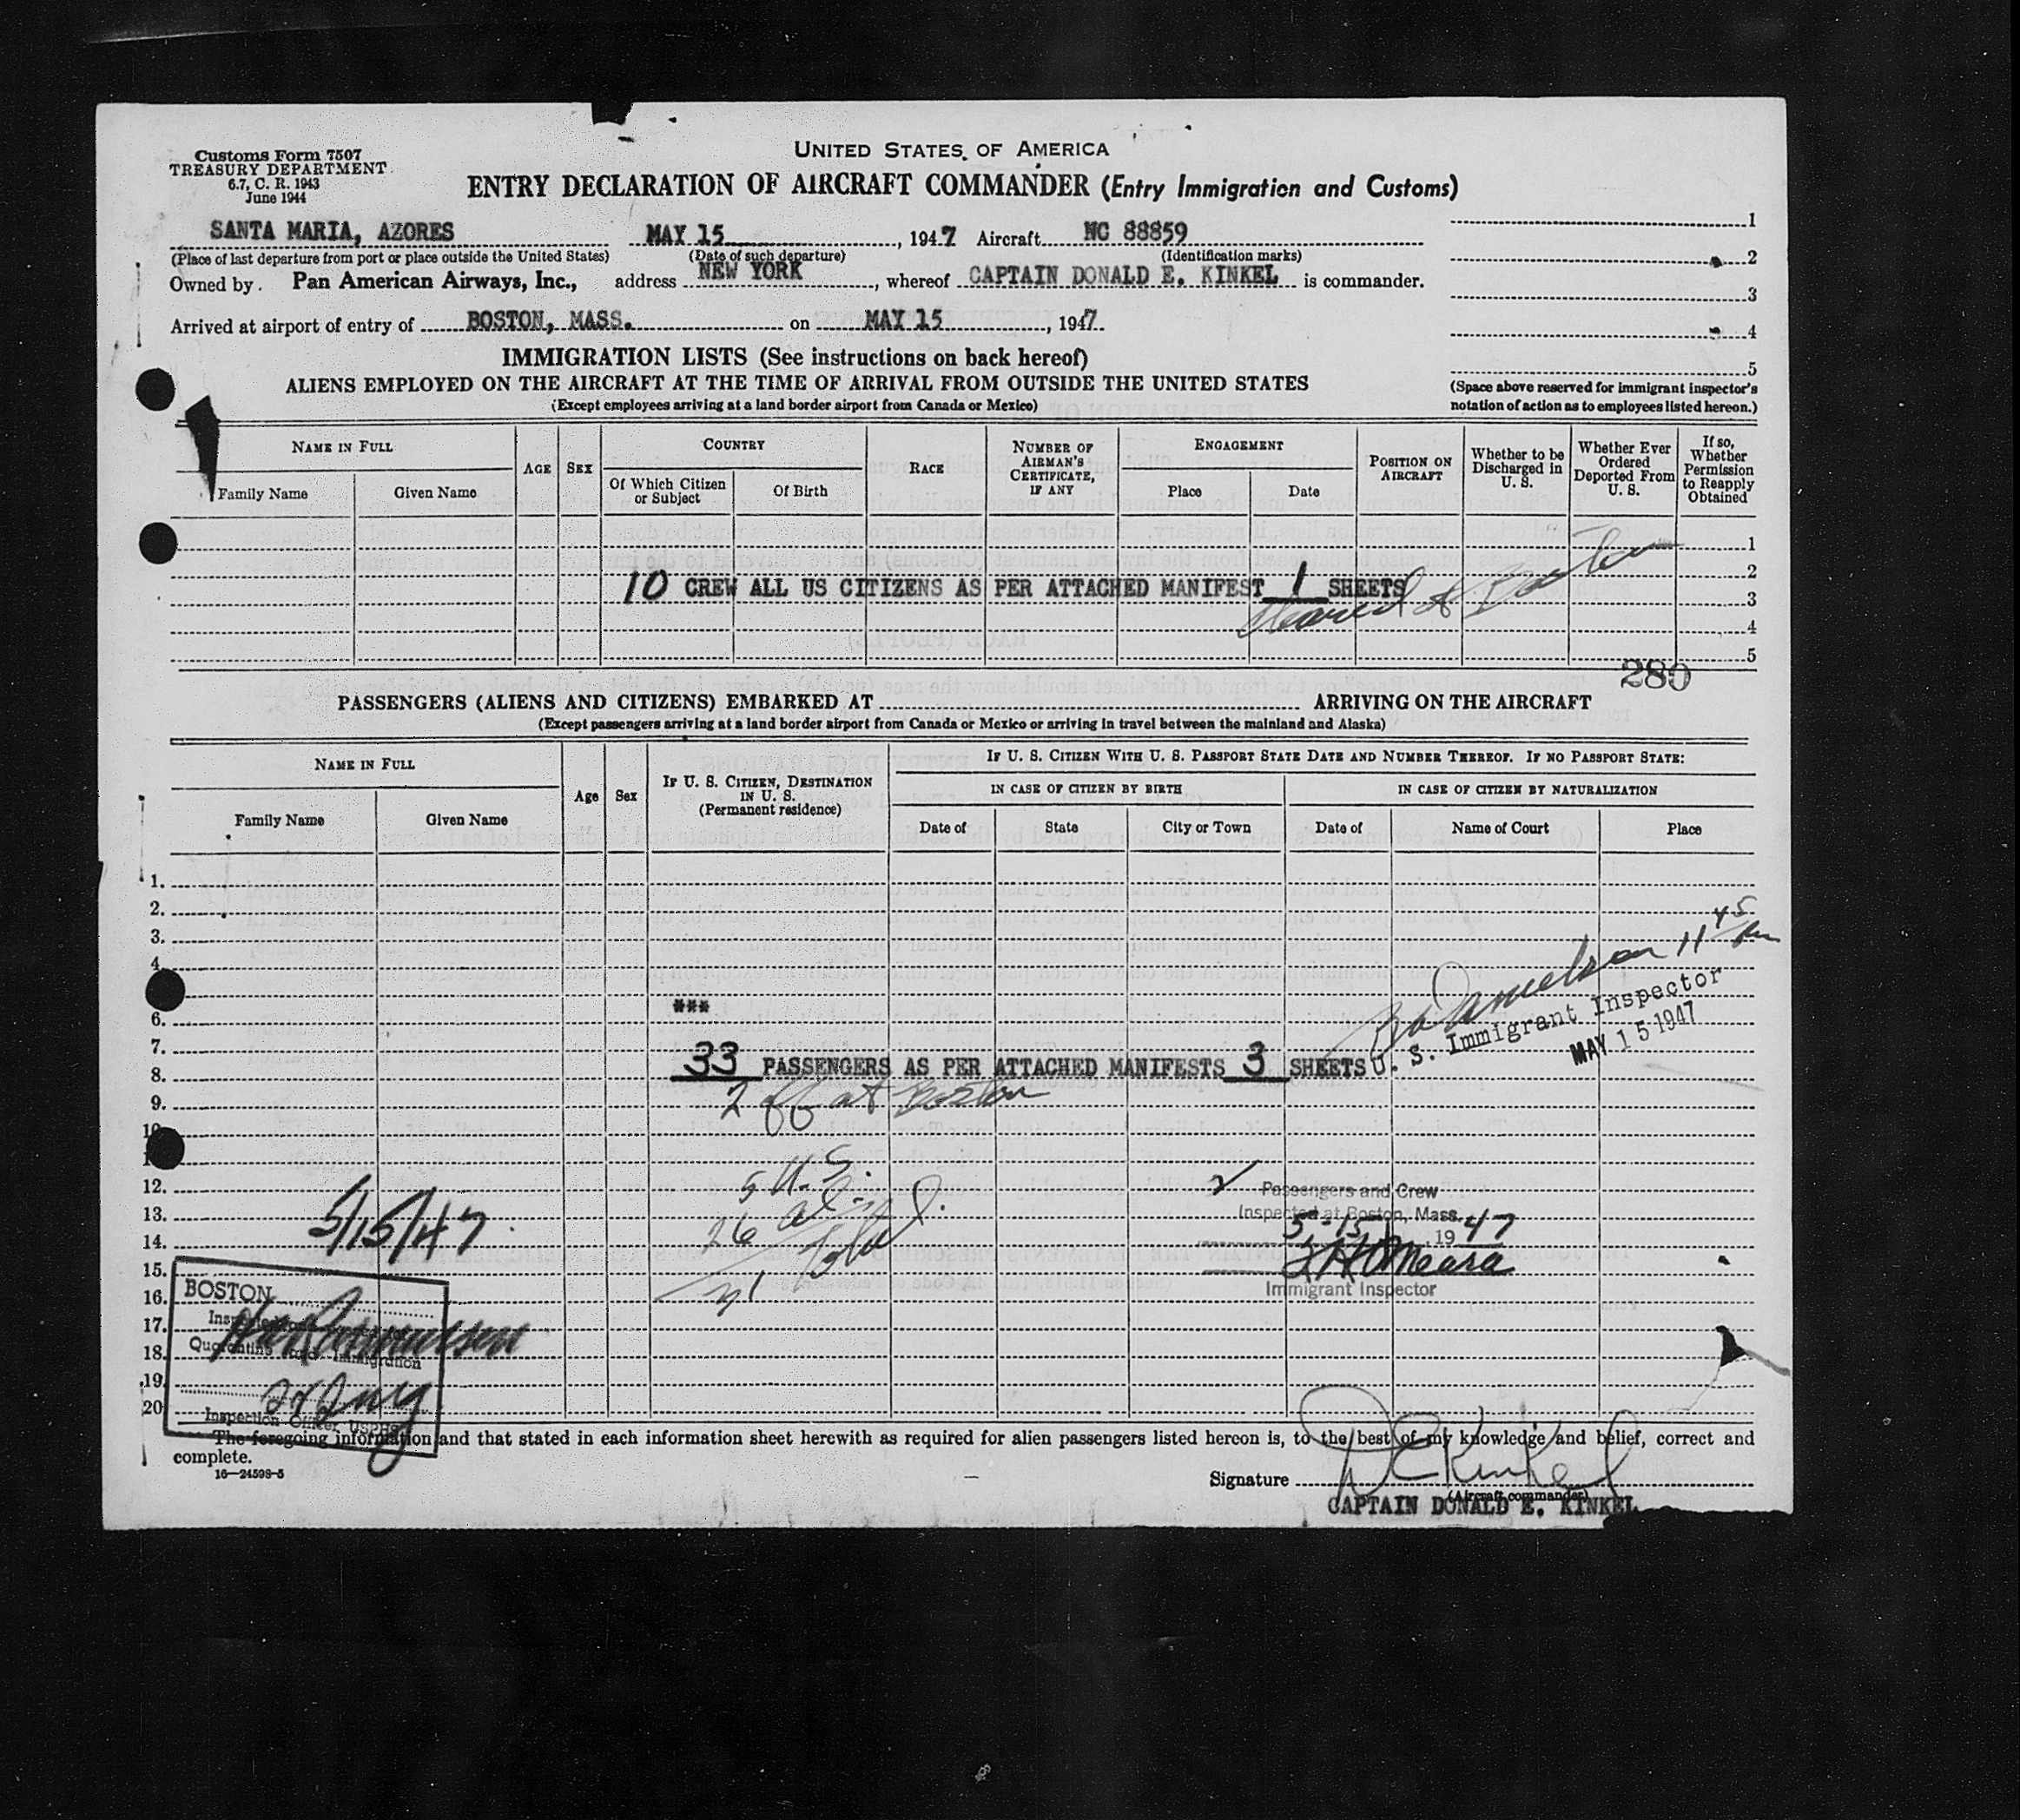 Customs Form 7507
TREASURY DEPARTMENT
6.7, C. R. 1943
June 1944
UNITED STATES OF AMERICA
ENTRY DECLARATION OF AIRCRAFT COMMANDER (Entry Immigration and Customs)
SANTA MARIA, AZORES MAY 15, 1947 Aircraft NC 88859
(Place of last departure from port or place outside the United States) (Date of such departure) (Identification marks)
Owned by Pan American Airways, Inc., address NEW YORK, whereof CAPTAIN DONALD E. KINKEL is commander.
Arrived at airport of entry of BOSTON, MASS. on MAY 15, 1947.
1
2
3
4
5
(Space above reserved for immigrant inspector's
notation of action as to employees listed hereon.)
IMMIGRATION LISTS (See instructions on back hereof)
ALIENS EMPLOYED ON THE AIRCRAFT AT THE TIME OF ARRIVAL FROM OUTSIDE THE UNITED STATES
(Except employees arriving at a land border airport from Canada or Mexico)
NAME IN FULL
Family Name
Given Name
AGE
SEX
COUNTRY
Of Which Citizen
or Subject
Of Birth
RACE
NUMBER OF
AIRMAN'S
CERTIFICATE,
IF ANY
ENGAGEMENT
Place
Date
POSITION ON
AIRCRAFT
Whether to be
Discharged in
U. S.
Whether Ever
Ordered
Deported From
U. S.
If so,
Whether
Permission
to Reapply
Obtained
1
2
10 CREW ALL US CITIZENS AS PER ATTACHED MANIFEST 1 SHEETS
3
Boston
4
5
280
PASSENGERS (ALIENS AND CITIZENS) EMBARKED AT ARRIVING ON THE AIRCRAFT
(Except passengers arriving at a land border airport from Canada or Mexico or arriving in travel between the mainland and Alaska)
NAME IN FULL
Family Name
Given Name
Age
Sex
IF U. S. CITIZEN, DESTINATION
IN U. S.
(Permanent residence)
IF U. S. CITIZEN WITH U. S. PASSPORT STATE DATE AND NUMBER THEREOF. IF NO PASSPORT STATE:
IN CASE OF CITIZEN BY BIRTH
Date of
State
City or Town
IN CASE OF CITIZEN BY NATURALIZATION
Date of
Name of Court
Place
1.
2.
3.
4.
6.
7.
8.
9.
10
12.
13.
14.
15.
16.
17.
18.
19.
20.
Danielson 11 45
U. S. Immigrant Inspector
MAY 15 1947
***
33 PASSENGERS AS PER ATTACHED MANIFESTS 3 SHEETS
2 off at Boston
5 U.S.
26 al.
31 Total
Passengers and Crew
Inspected at Boston, Mass.
5-15 1947
O'Meara
Immigrant Inspector
5/15/47
BOSTON
Quarantine and Immigration
Inspection Officer, USPHS
The foregoing information and that stated in each information sheet herewith as required for alien passengers listed hereon is, to the best of my knowledge and belief, correct and
complete.
16—24598-5
Signature D E Kinkel
(Aircraft commander)
CAPTAIN DONALD E. KINKEL